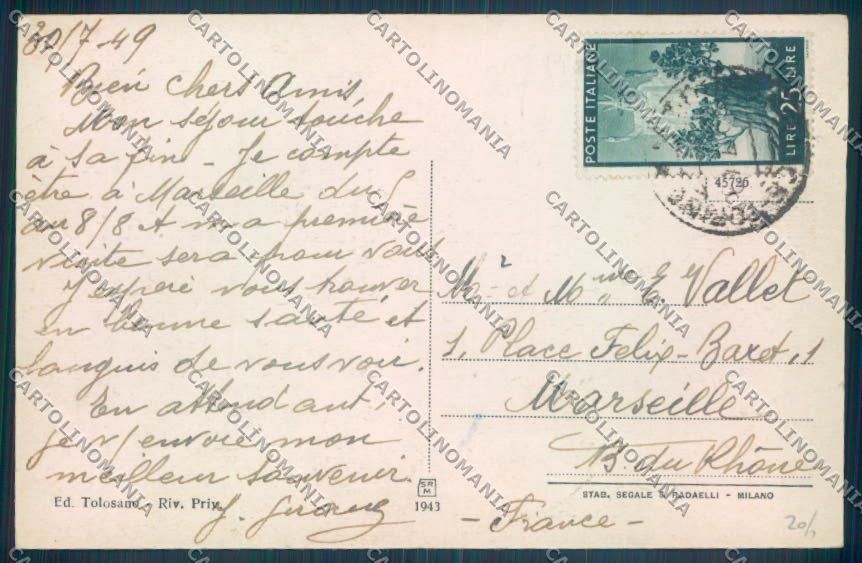 30/7-49
Bien chers Amis
Mon séjour touche
à sa fin - Je compte
être à Marseille du 5
au 8/8 A ma première
visite sera pour vous
J'espère vous trouver
en bonne santé et
languis de vous voir.
En attendant,
je v/ envoie mon
meilleur souvenir.
Ed. Tolosano - Riv. Priv.
SRM
1943
POSTE ITALIANE
LIRE 25 LIRE
45726
Mr et Mme E. Vallet
1, Place Felix-Baret, 1
Marseille
B. du Rhône
STAB. SEGALE & BADAELLI - MILANO
- France -
20/
CARTOLINOMANIA